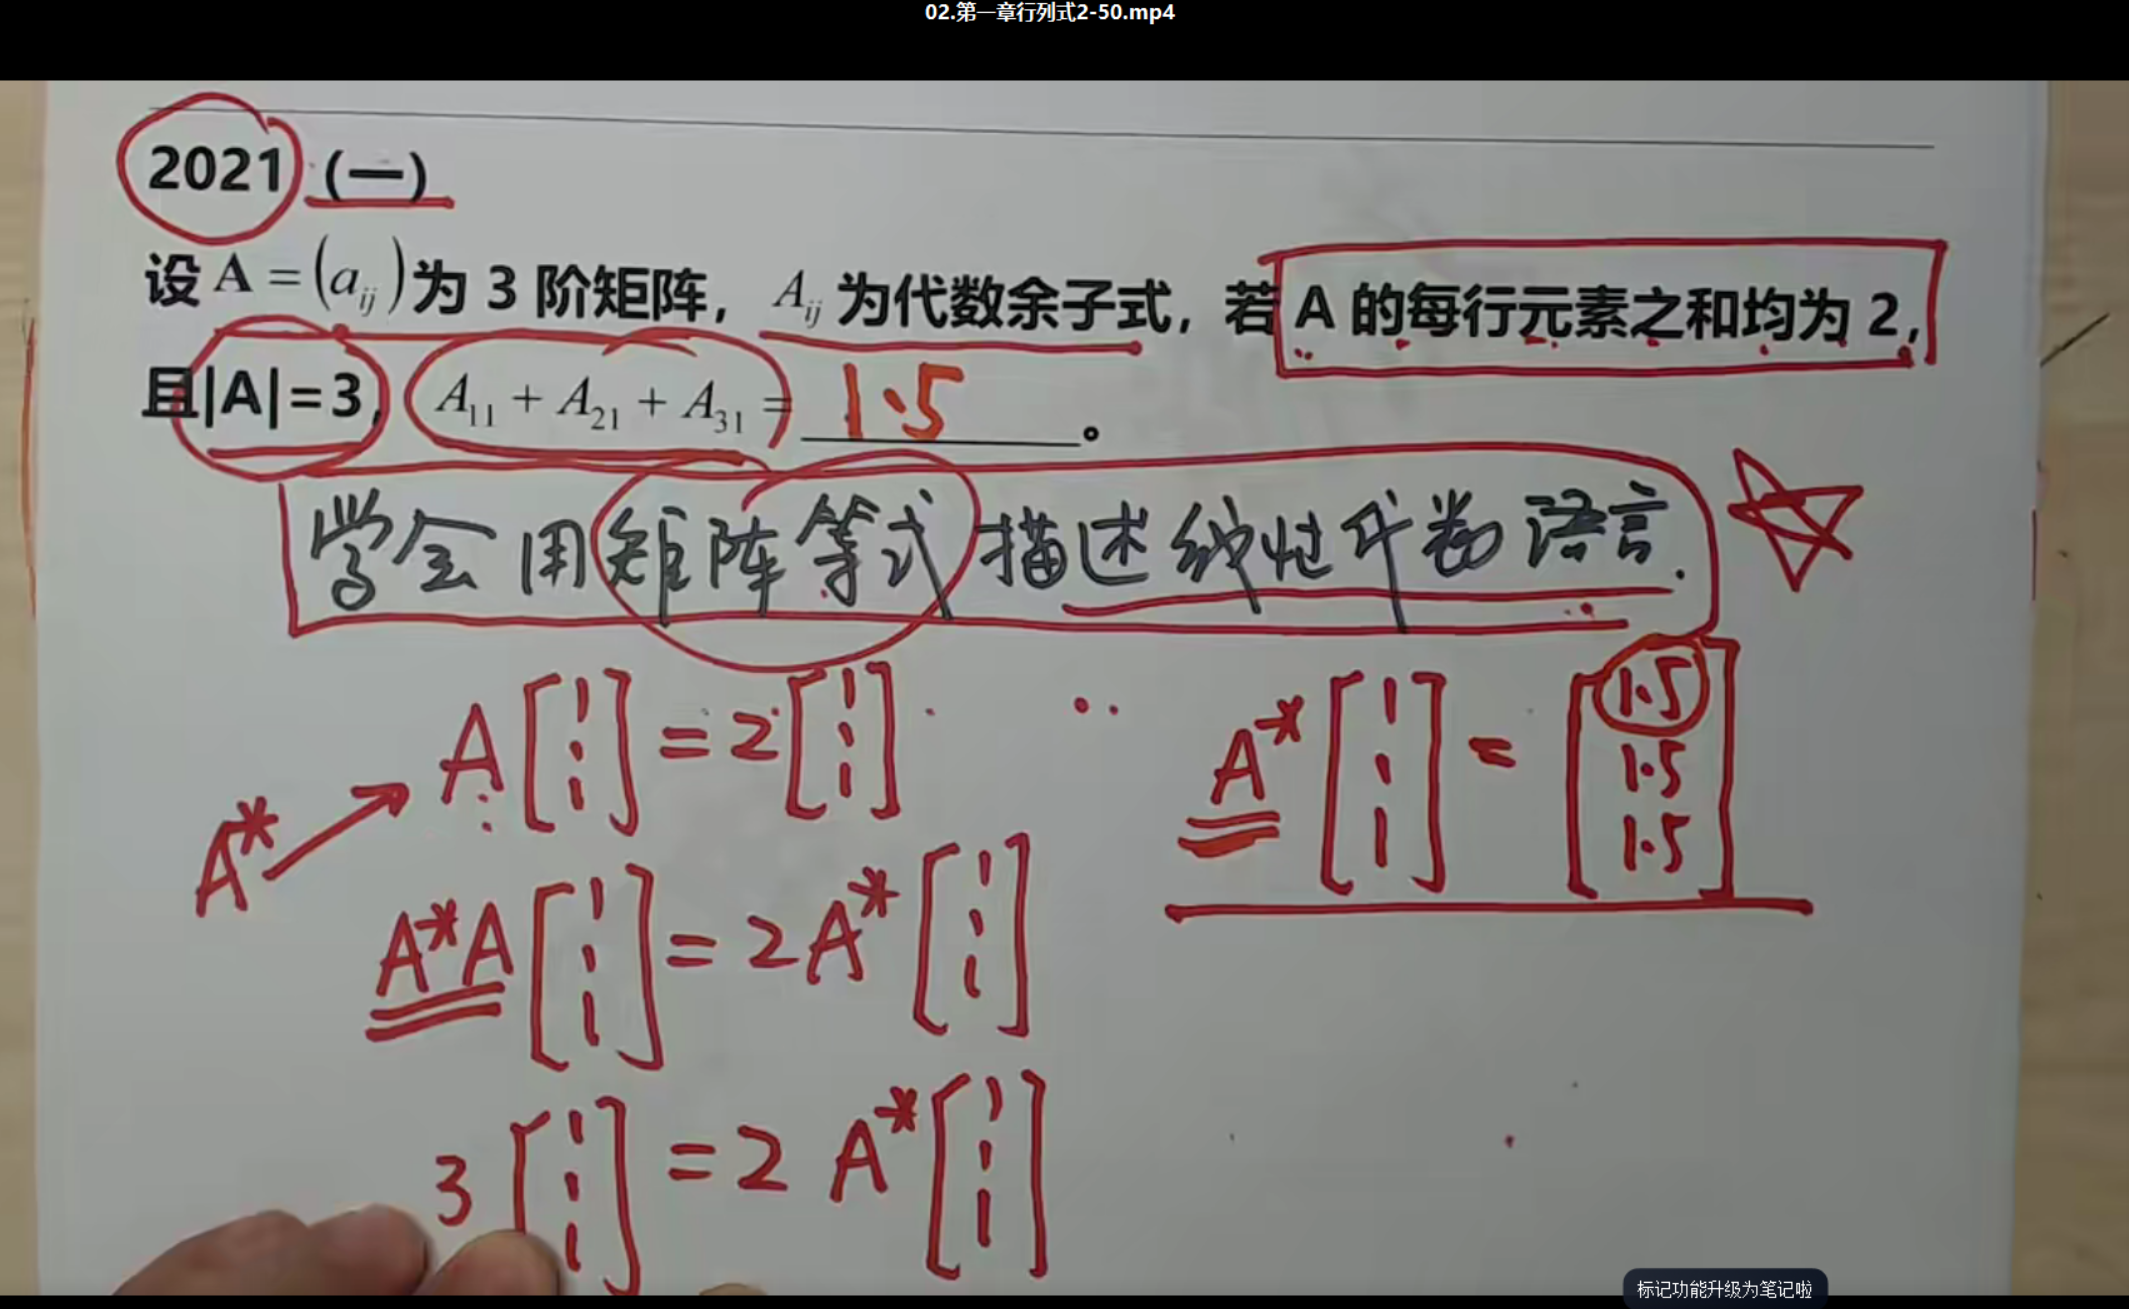 02.第一章行列式2-50.mp4
2021 (一)
设 A = (a_{ij}) 为 3 阶矩阵，A_{ij} 为代数余子式，若 A 的每行元素之和均为 2，
且|A|=3，A_{11} + A_{21} + A_{31} = 1.5 。
学会用矩阵等式描述线性代数语言.
A [1 1 1] = 2 [1 1 1]
A* [1 1 1] = [1.5 1.5 1.5]
A*
A*A [1 1 1] = 2A* [1 1 1]
3 [1 1 1] = 2 A* [1 1 1]
标记功能升级为笔记啦